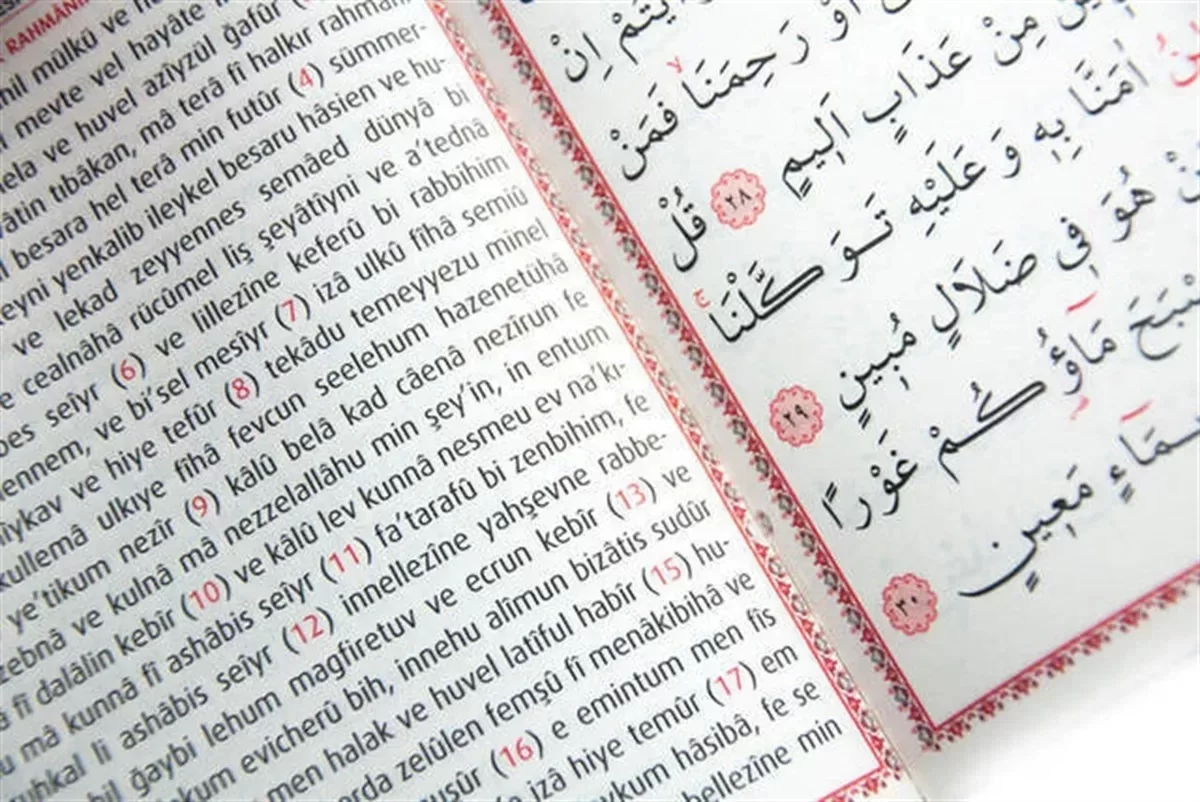 RAHMÂNİ
hil mülkü ve
mevte vel hayâte
ve huvel azîyzül ğafûr
tıbâkan, mâ terâ fî halkır rahmâni
besara hel terâ min futûr (4) sümmer-
yenkalib ileykel besaru hâsien ve hu-
ve lekad zeyyennes semâed dünyâ bi
cealnâhâ rücûmel liş şeyâtîyni ve a'tednâ
seîyr (6) ve lillezîne keferû bi rabbihim
ennem, ve bi'sel mesîyr (7) izâ ulkû fîhâ semiû
îykav ve hiye tefûr (8) tekâdu temeyyezu minel
kullemâ ulkıye fîhâ fevcun seelehum hazenetühâ
ye'tikum nezîr (9) kâlû belâ kad câenâ nezîrun fe
zebnâ ve kulnâ mâ nezzelallâhu min şey'in, in entum
fî dalâlin kebîr (10) ve kâlû lev kunnâ nesmeu ev na'kı-
mâ kunnâ fî ashâbis seîyr (11) fa'tarafû bi zenbihim, fe
uhkal li ashâbis seîyr (12) innellezîne yahşevne rabbe-
bil ğaybi lehum magfiretuv ve ecrun kebîr (13) ve
kum evicherû bih, innehu alîmun bizâtis sudûr
men halak ve huvel latîful habîr (15) hu-
arda zelûlen femşû fî menâkibihâ ve
(16) e emintum men fîs
izâ hiye temûr (17) em
hâsibâ, fe se
bellezîne min
اِنْ
اَوْ رَحِمَنَا فَمَنْ
مِنْ عَذَابٍ اَلِيمٍ ﴿٢٨﴾ قُلْ
اٰمَنَّا بِهِ وَ عَلَيْهِ تَوَكَّلْنَا
هُوَ فِي ضَلَالٍ مُبِينٍ ﴿٢٩﴾
مَاؤُكُمْ غَوْرًا
مَعِينٍ ﴿٣٠﴾